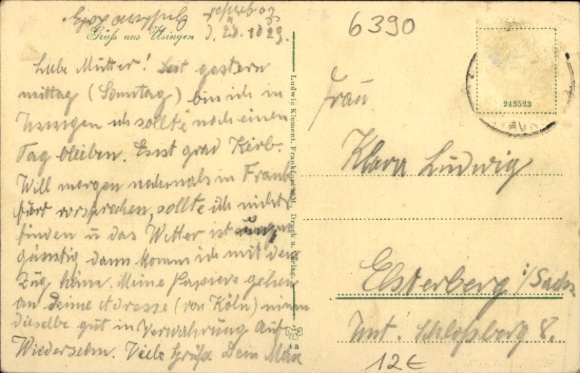 Gruß aus Usingen
Liebe Mutter! Seit gestern
mittag (Sonntag) bin ich in
Usingen ich sollte noch einen
Tag bleiben. Es ist grad Kerb.
Will morgen nochmals in Frank
furt vorsprechen, sollte ich nichts
finden u das Wetter ist ungün
günstig dann komm ich mit dem
Zug heim. Meine Papiere gehen
an deine Adresse (von Köln) nimm
dieselbe gut in Verwahrung Auf
Wiedersehn. Viele Grüße Dein Max
Ludwig Klement, Frankfurt a. M. Druck u.
6390
243523
Frau
Klara Ludwig
Elsterberg i/Sachs
Unt. Schloßberg 8.
12€